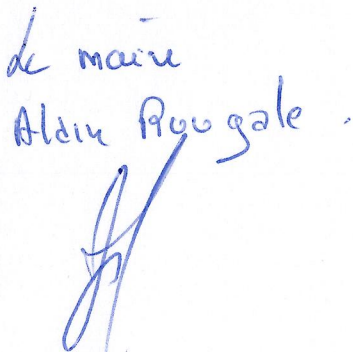 Le maire
Alain Rougale.